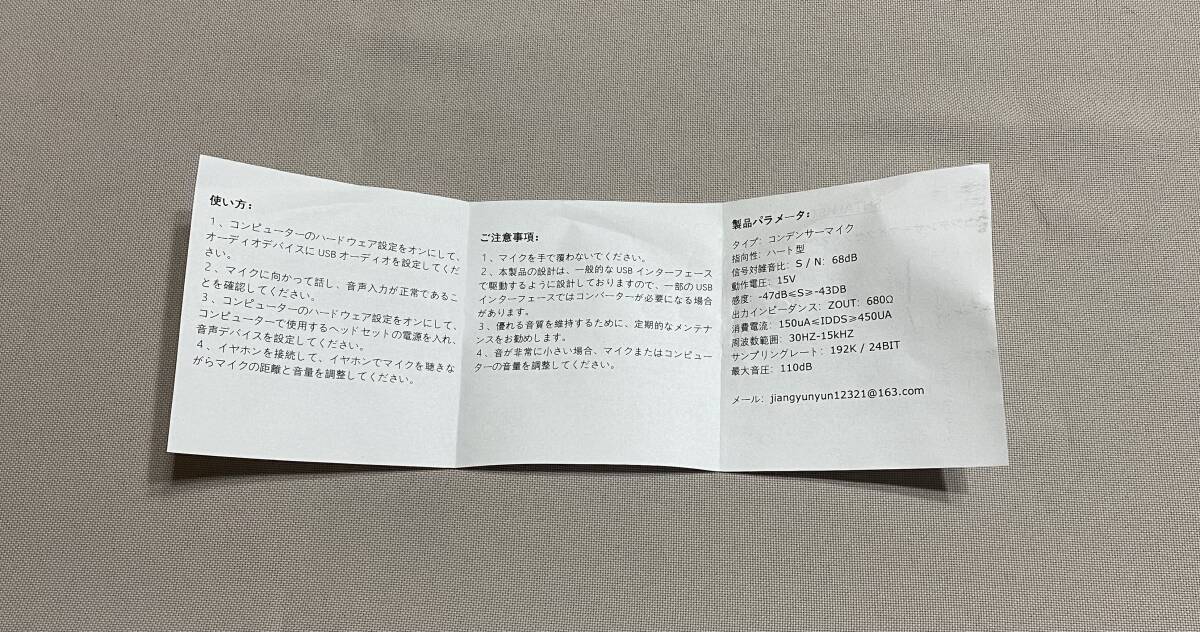 使い方:
1、コンピューターのハードウェア設定をオンにして、
オーディオデバイスにUSBオーディオを設定してくだ
さい。
2、マイクに向かって話し、音声入力が正常であるこ
とを確認してください。
3、コンピューターのハードウェア設定をオンにして、
コンピューターで使用するヘッドセットの電源を入れ、
音声デバイスを設定してください。
4、イヤホンを接続して、イヤホンでマイクを聴きな
がらマイクの距離と音量を調整してください。
ご注意事項:
1、マイクを手で覆わないでください。
2、本製品の設計は、一般的なUSBインターフェース
で駆動するように設計しておりますので、一部のUSB
インターフェースではコンバーターが必要になる場合
があります。
3、優れる音質を維持するために、定期的なメンテナ
ンスをお勧めします。
4、音が非常に小さい場合、マイクまたはコンピュー
ターの音量を調整してください。
製品パラメータ:
タイプ: コンデンサーマイク
指向性: ハート型
信号対雑音比: S / N: 68dB
動作電圧: 15V
感度: -47dB≤S≥-43DB
出力インピーダンス: ZOUT: 680Ω
消費電流: 150uA≤IDDS≥450UA
周波数範囲: 30HZ-15kHZ
サンプリングレート: 192K / 24BIT
最大音圧: 110dB
メール: jiangyunyun12321@163.com